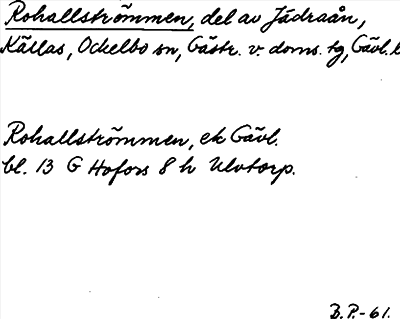 Rohallströmmen, del av Jädraån,
Källas, Ockelbo sn, Gästr. v. doms. tg, Gävl. l
Rohallströmmen, ek Gävl.
bl. 13 G Hofors 8 h Ulvtorp.
B.P.-61.